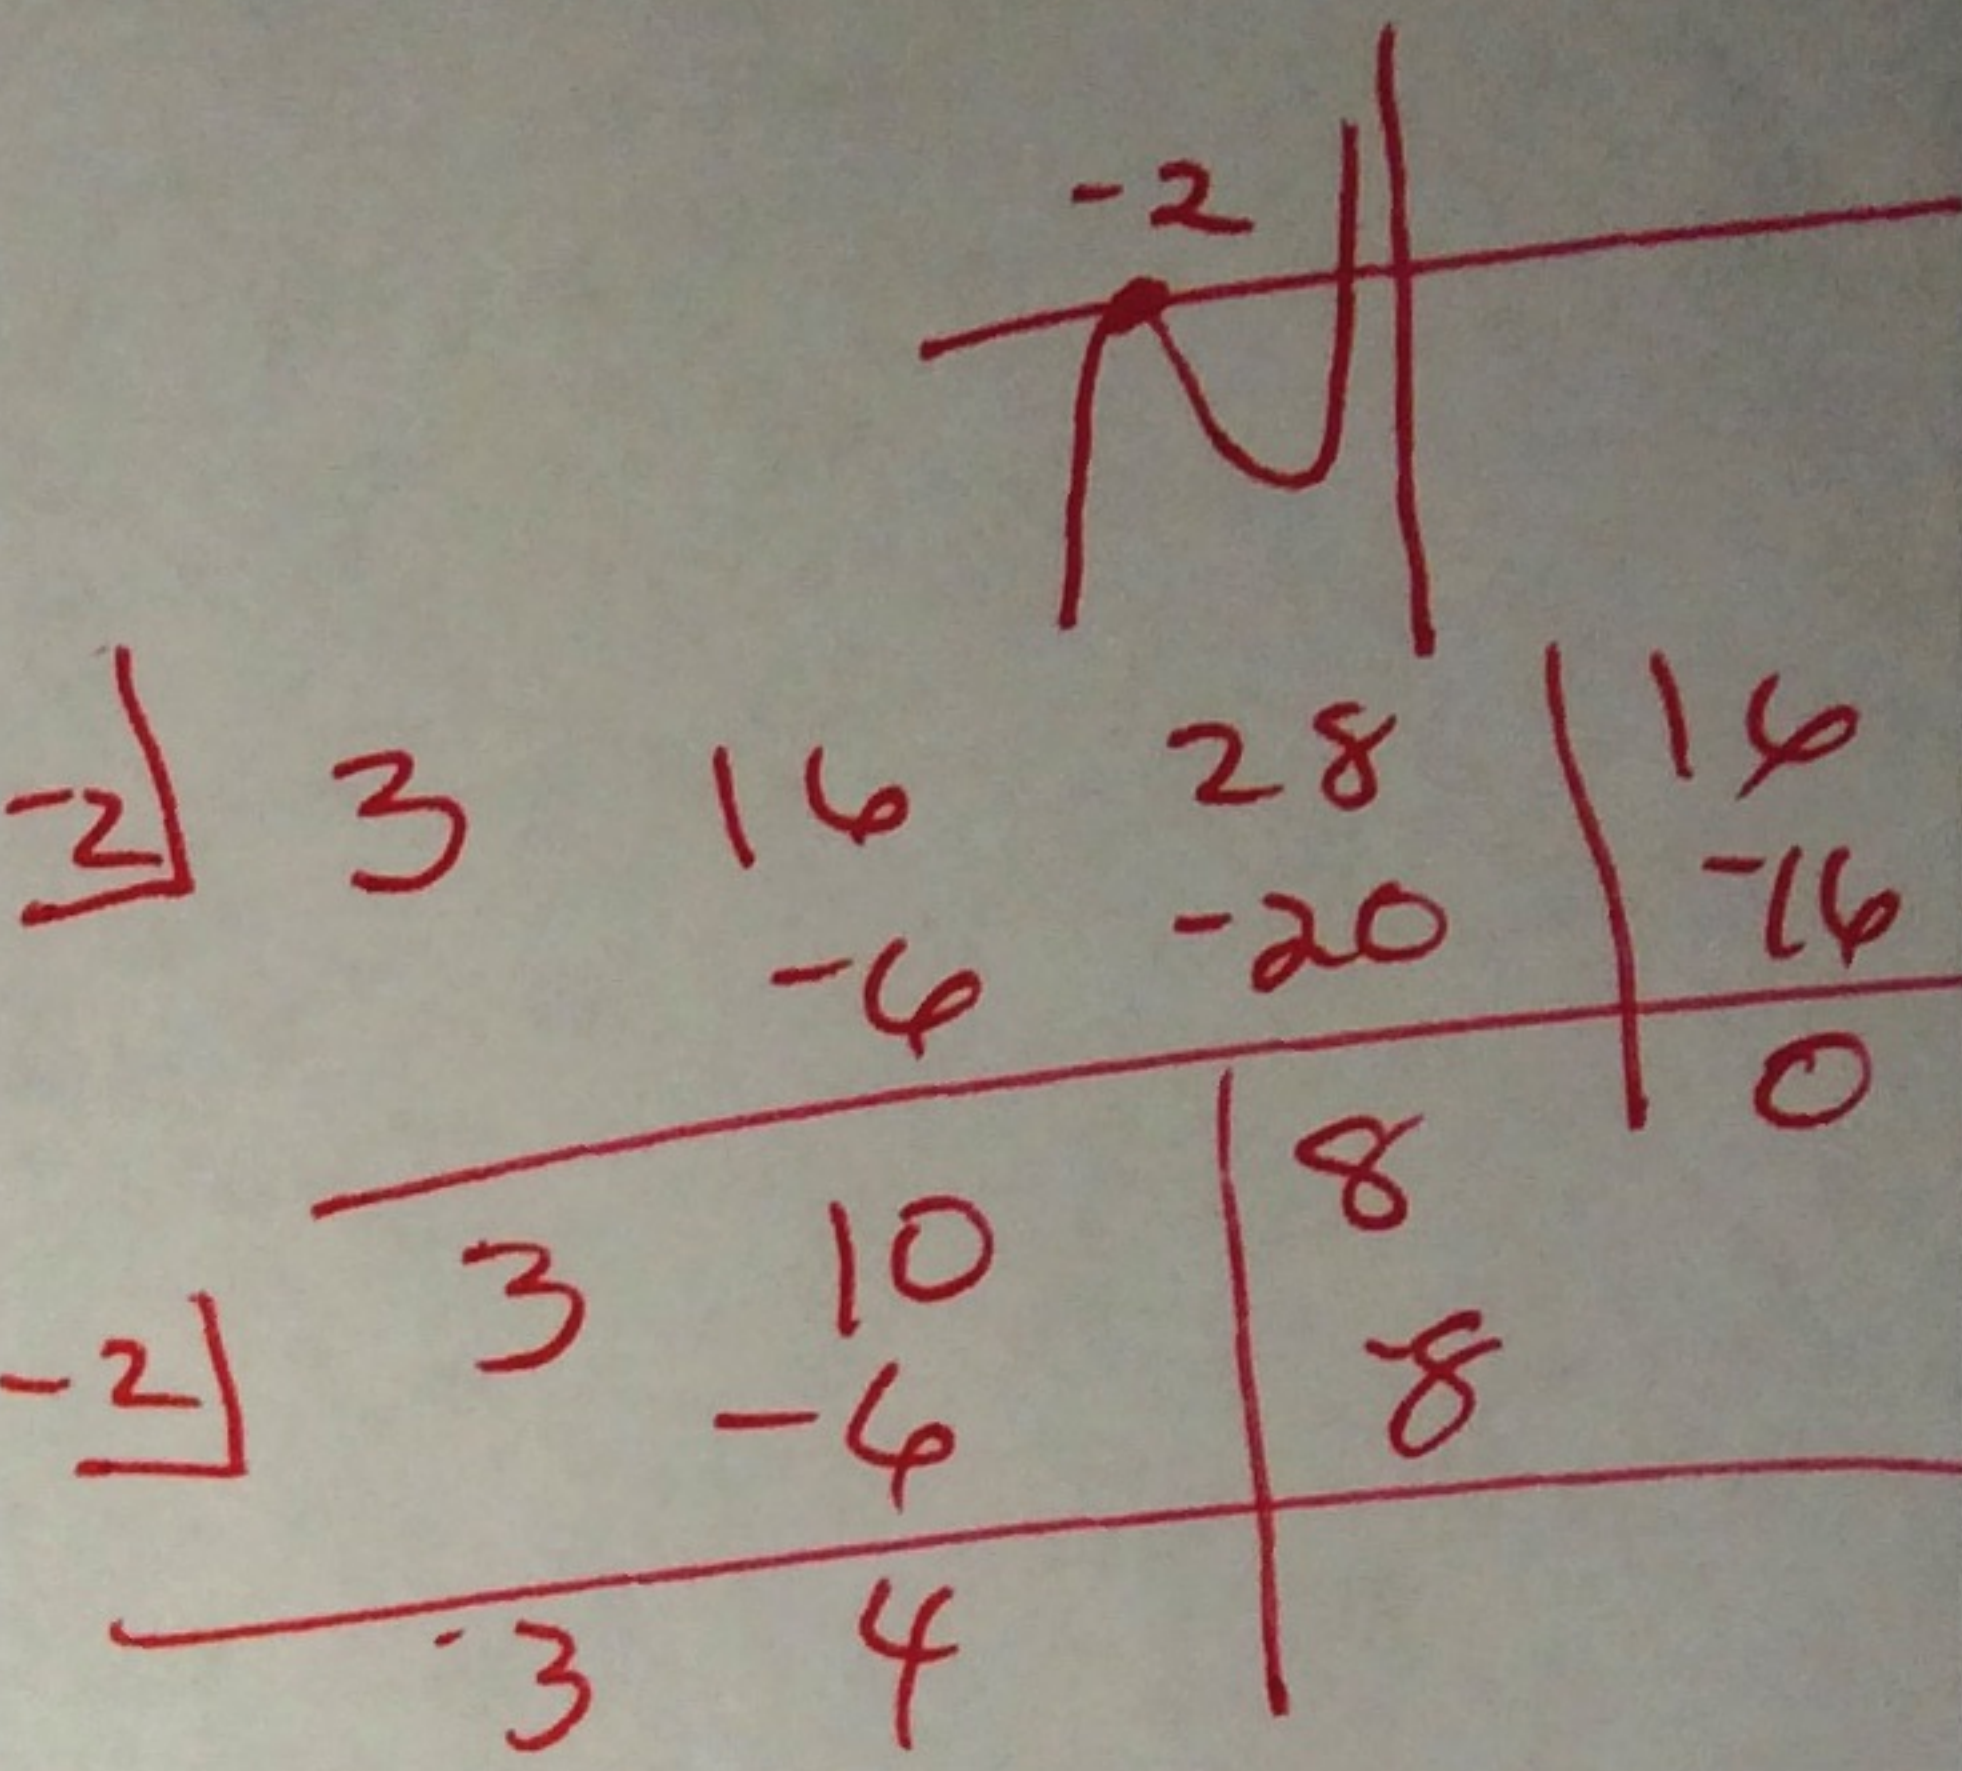 -2
-2 3 16 28 16
-6 -20 -16
3 10 8 0
-2 -6 -8
3 4